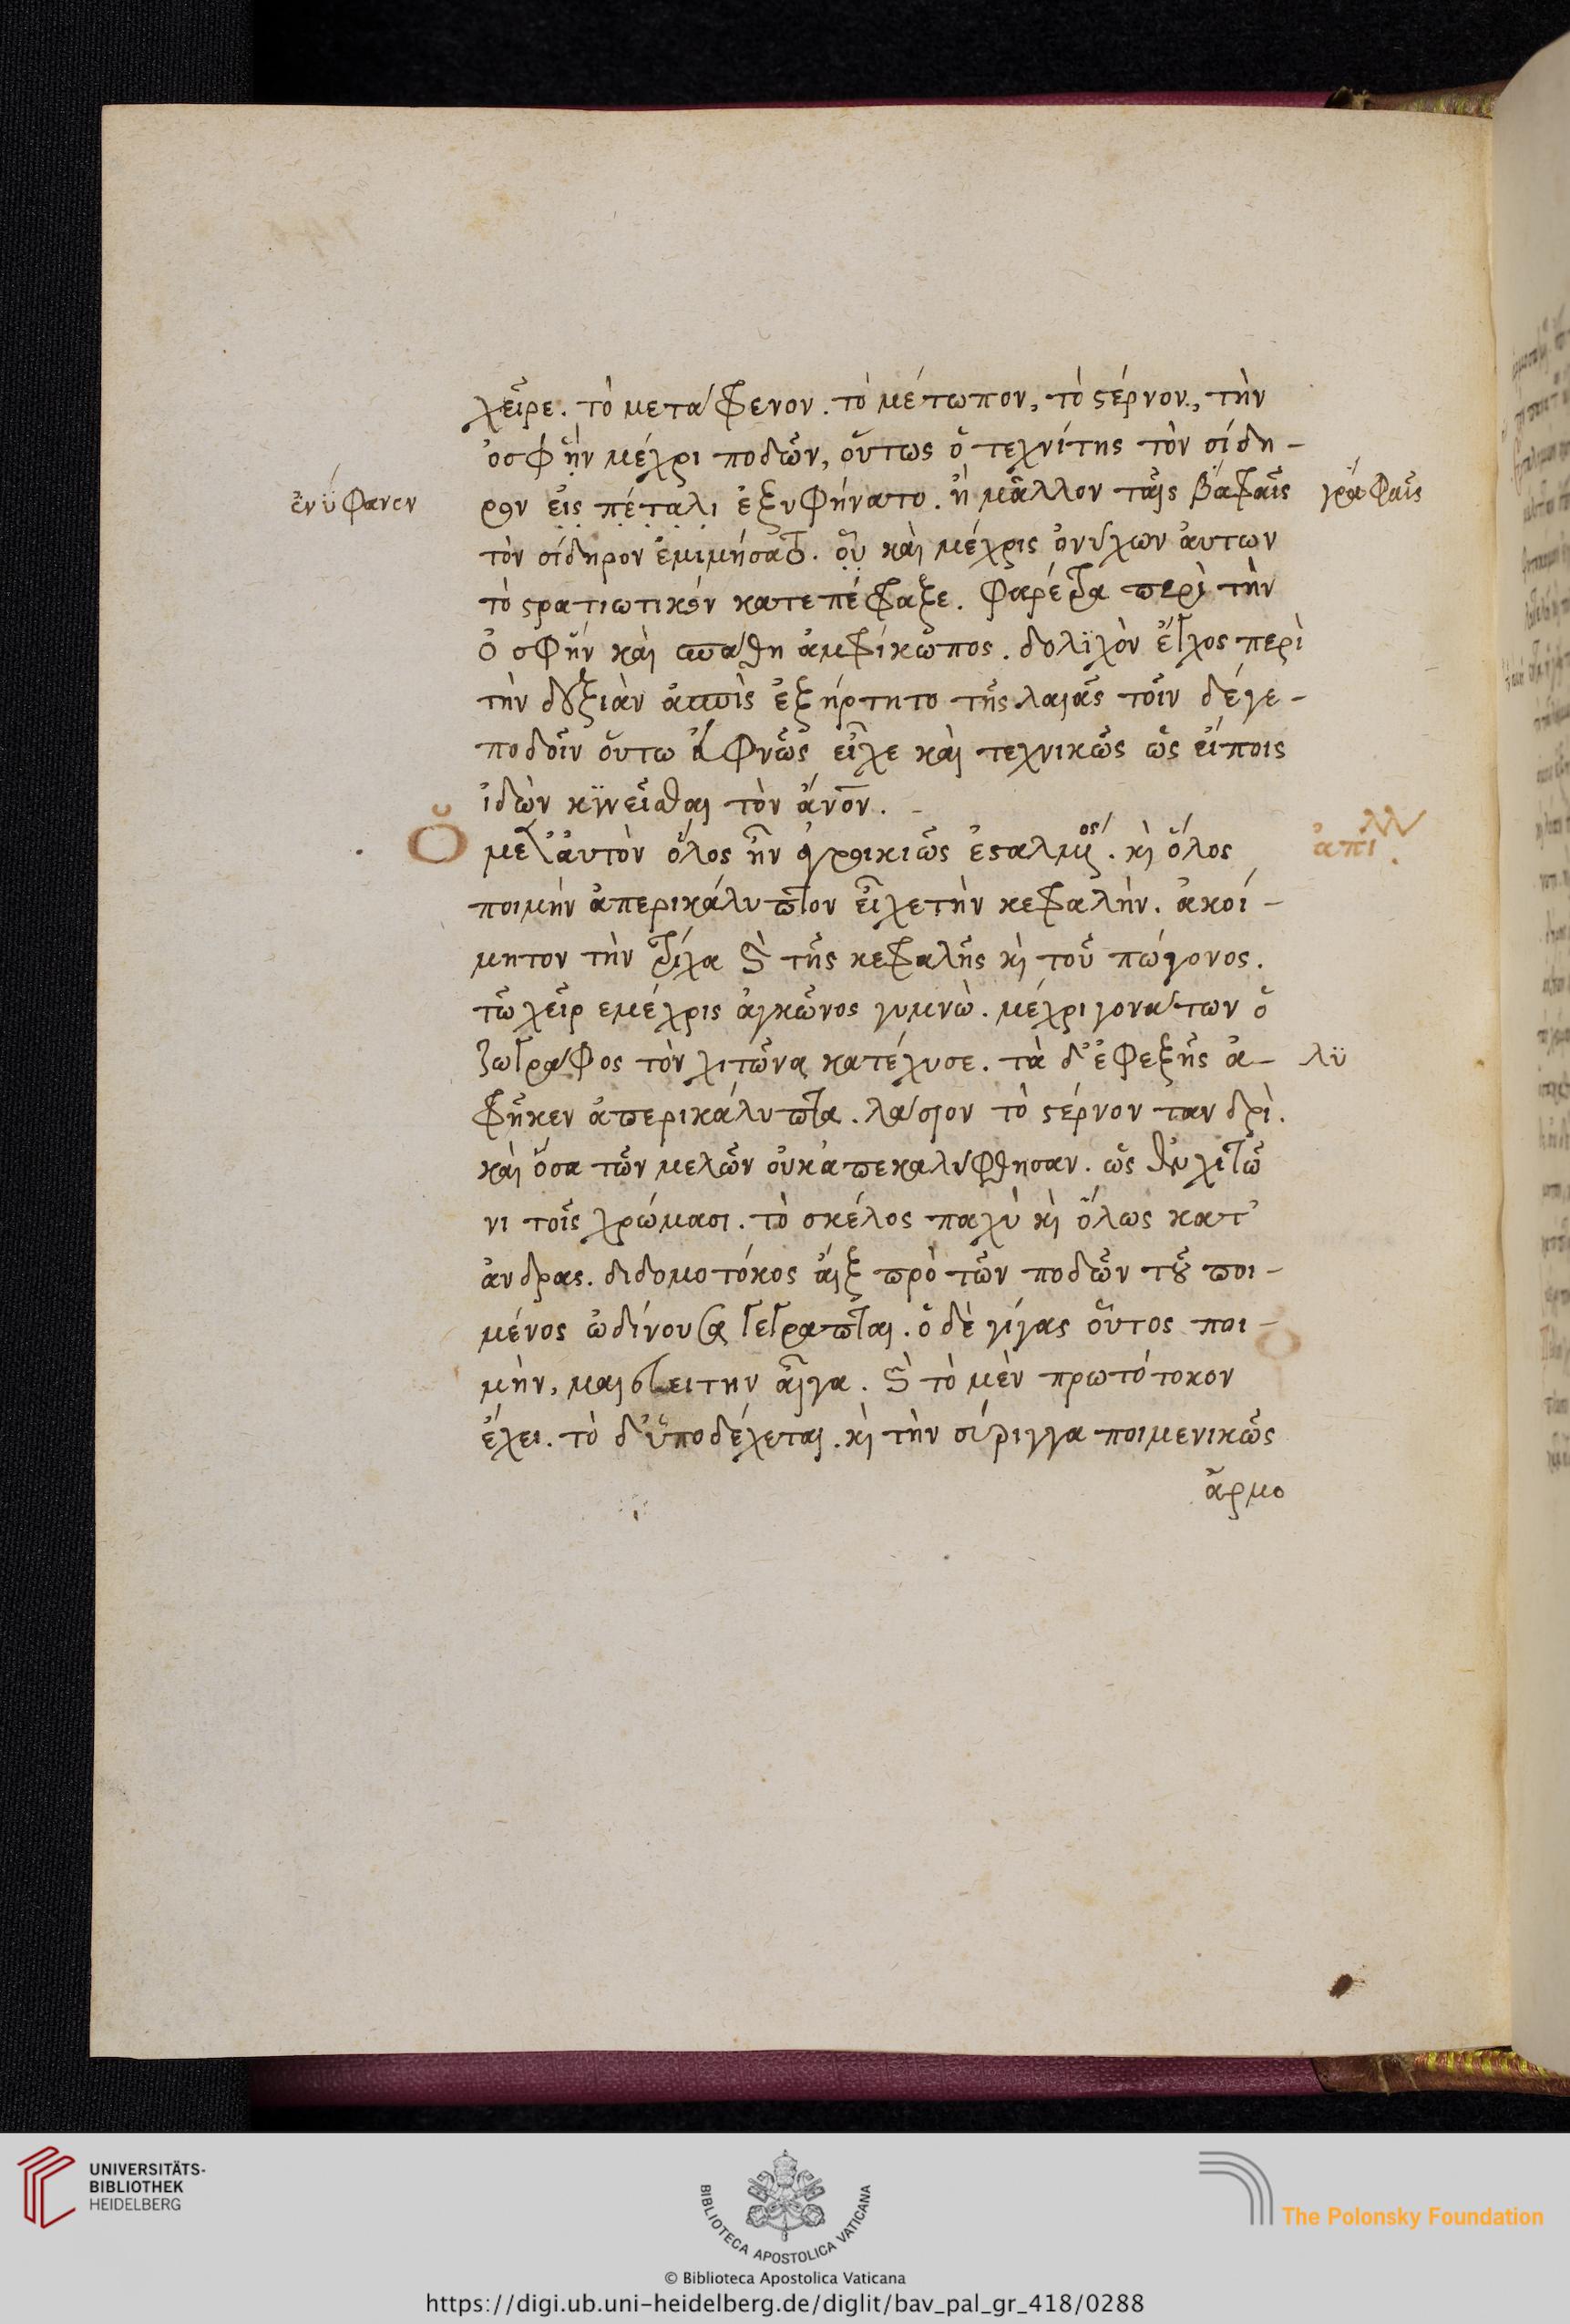 χεῖρε. τὸ μετάφρενον. τὸ μέτωπον, τὸ στέρνον, τὴν
ὀσφῦν μέχρι ποδῶν, οὕτως ὁ τεχνίτης τὸν σίδη-
ἐνύφανεν
ρον εἰς πέταλι ἐξυφήνατο. ἢ μᾶλλον ταῖς βαφαῖς
γραφαῖς
τὸν σίδηρον ἐμιμήσατο. οὗ καὶ μέχρις ὀνύχων αὐτων
τὸ στρατιωτικὸν κατεπέφραξε. φαρέτρα περὶ τὴν
ὀσφῦν καὶ σπάθη ἀμφίκωπος. δολιχὸν ἔγχος περὶ
τὴν δεξιὰν ἀσπὶς ἐξήρτητο τῆς λαιᾶς τοῖν δέ γε-
ποδοῖν οὕτω εὐφυῶς εἶχε καὶ τεχνικῶς ὡς εἴποις
ἰδὼν κινεῖσθαι τὸν ἄνον.
Ὁ μετ' αὐτὸν ὅλος ἦν ἀγροικικῶς ἐσταλμένος. κὶ ὅλος
ποιμὴν ἀπερικάλυπτον εἶχε τὴν κεφαλὴν. ἀκοί-
μητον τὴν τρίχα καὶ τῆς κεφαλῆς κὶ τοῦ πώγονος.
τὼ χεῖρ ε μέχρις ἀγκῶνος γυμνὼ. μέχρι γονάτων ὁ
ζωγράφος τὸν χιτῶνα κατέχυσε. τὰ δ' ἐφεξῆς ἀ-
λϋ
φῆκεν ἀπερικάλυπτα. λάσιον τὸ στέρνον τανδρὶ.
καὶ ὅσα τῶν μελῶν οὐκ ἀπεκαλύφθησαν. ὡς ἐν χιτῶ
νι τοῖς χρώμασι. τὸ σκέλος παχὺ κὶ ὅλως κατ'
ἄνδρας. διδομοτόκος αἲξ πρὸ τῶν ποδῶν τοῦ ποι-
μένος ὠδίνουσα γέγραπται. ὁ δὲ γίγας οὗτος ποι-
μὴν, μαιεύει την αἶγα. καὶ τὸ μὲν πρωτότοκον
ἔχει. τὸ δ' ὑποδέχεται. κὶ τὴν σύριγγα ποιμενικῶς
ἅρμο
UNIVERSITÄTS-
BIBLIOTHEK
HEIDELBERG
BIBLIOTECA APOSTOLICA VATICANA
The Polonsky Foundation
© Biblioteca Apostolica Vaticana
https://digi.ub.uni-heidelberg.de/diglit/bav_pal_gr_418/0288